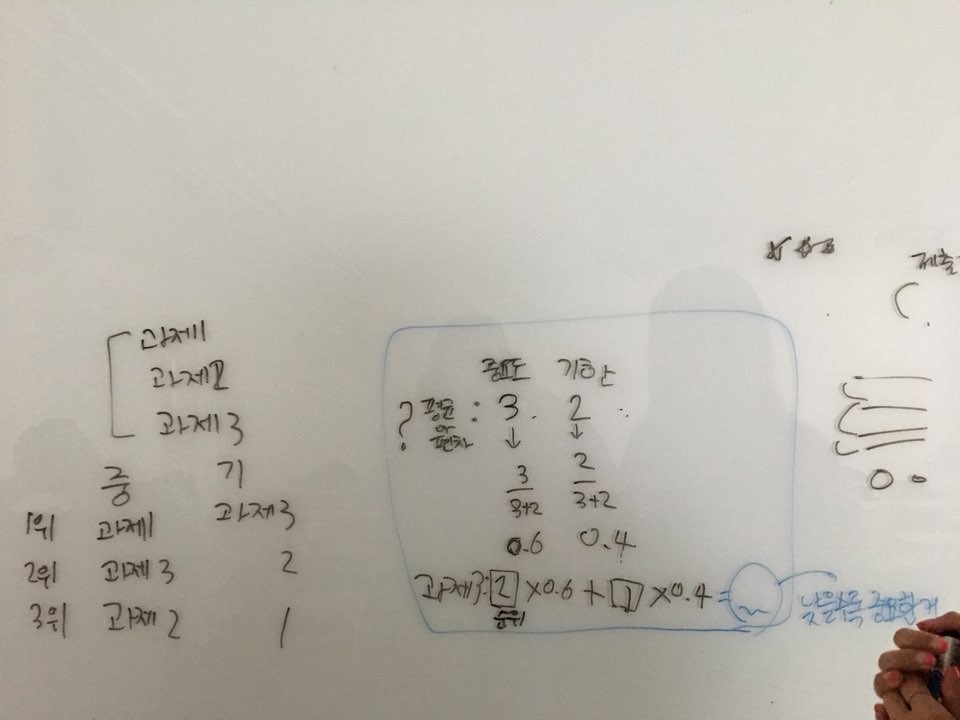 과제1
과제2
과제3
중 기
1위 과제1 과제3
2위 과제3 2
3위 과제2 1
중요도 기한
? 평균 or 편차 : 3. 2 ..
↓ ↓
3/3+2 2/3+2
0.6 0.4
과제3: 2 ×0.6 + 1 ×0.4 =
순위
낮을수록 중요한거
제출